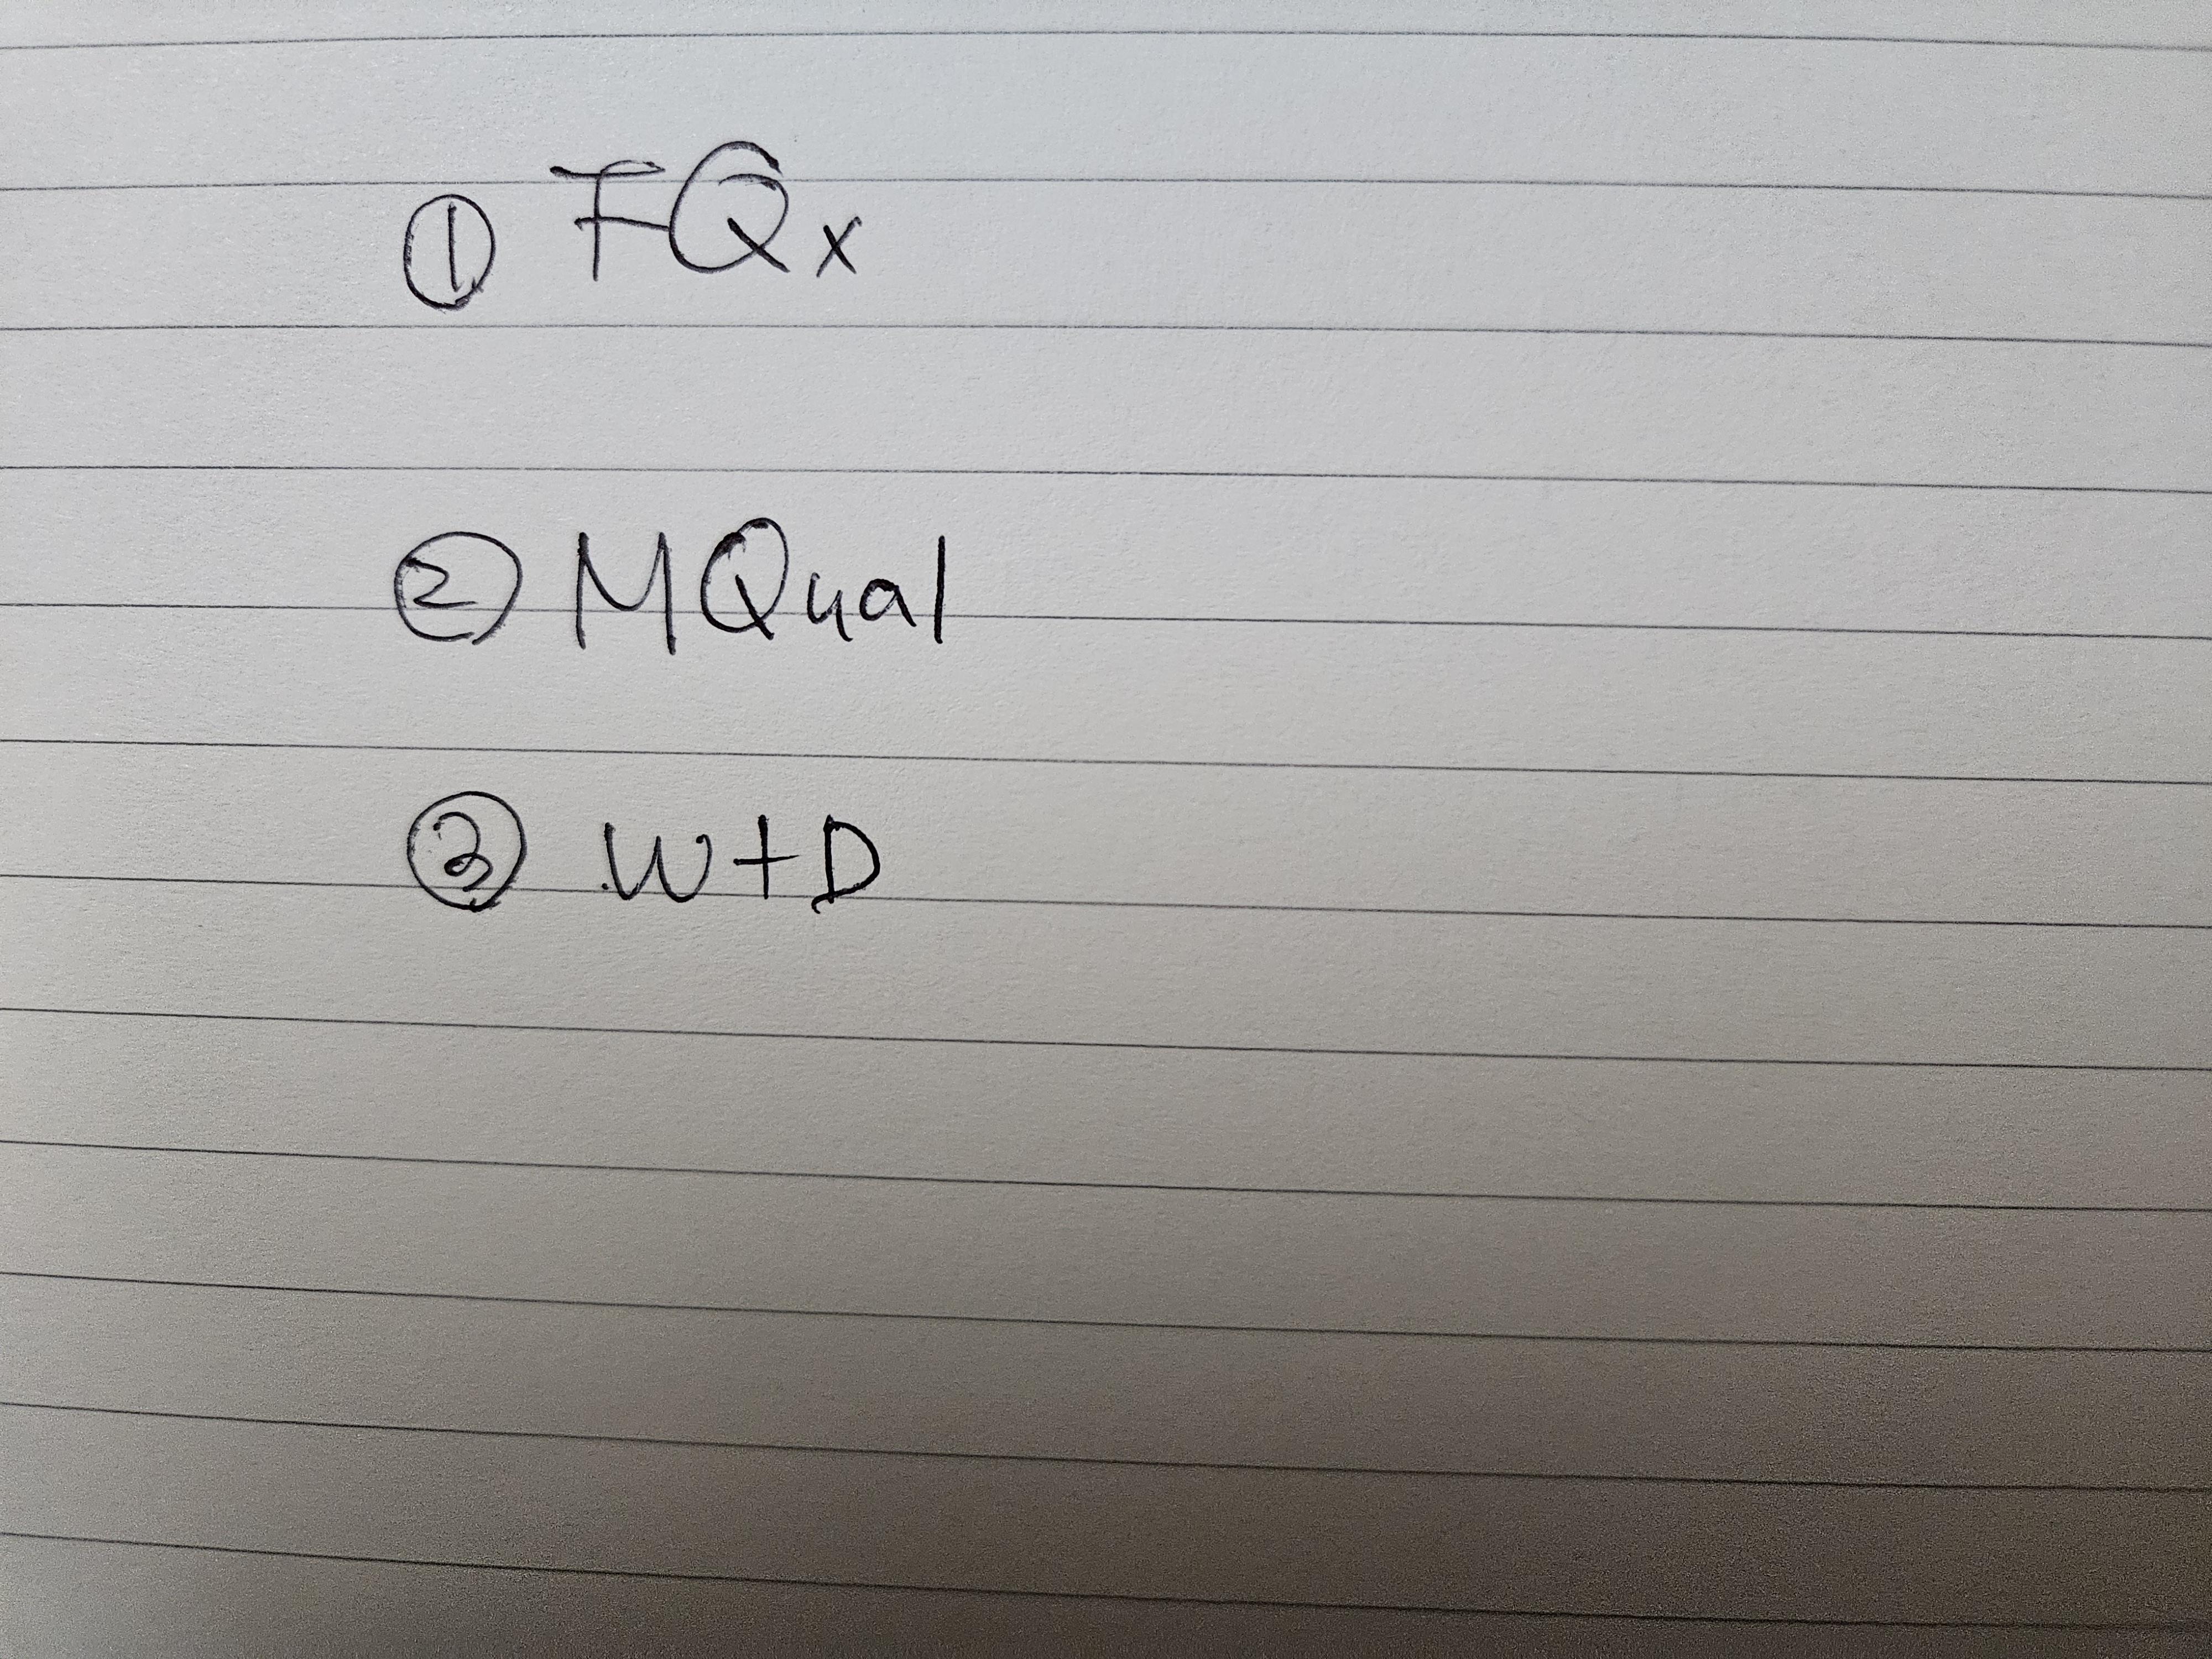 ① FQx
② MQual
③ W+D